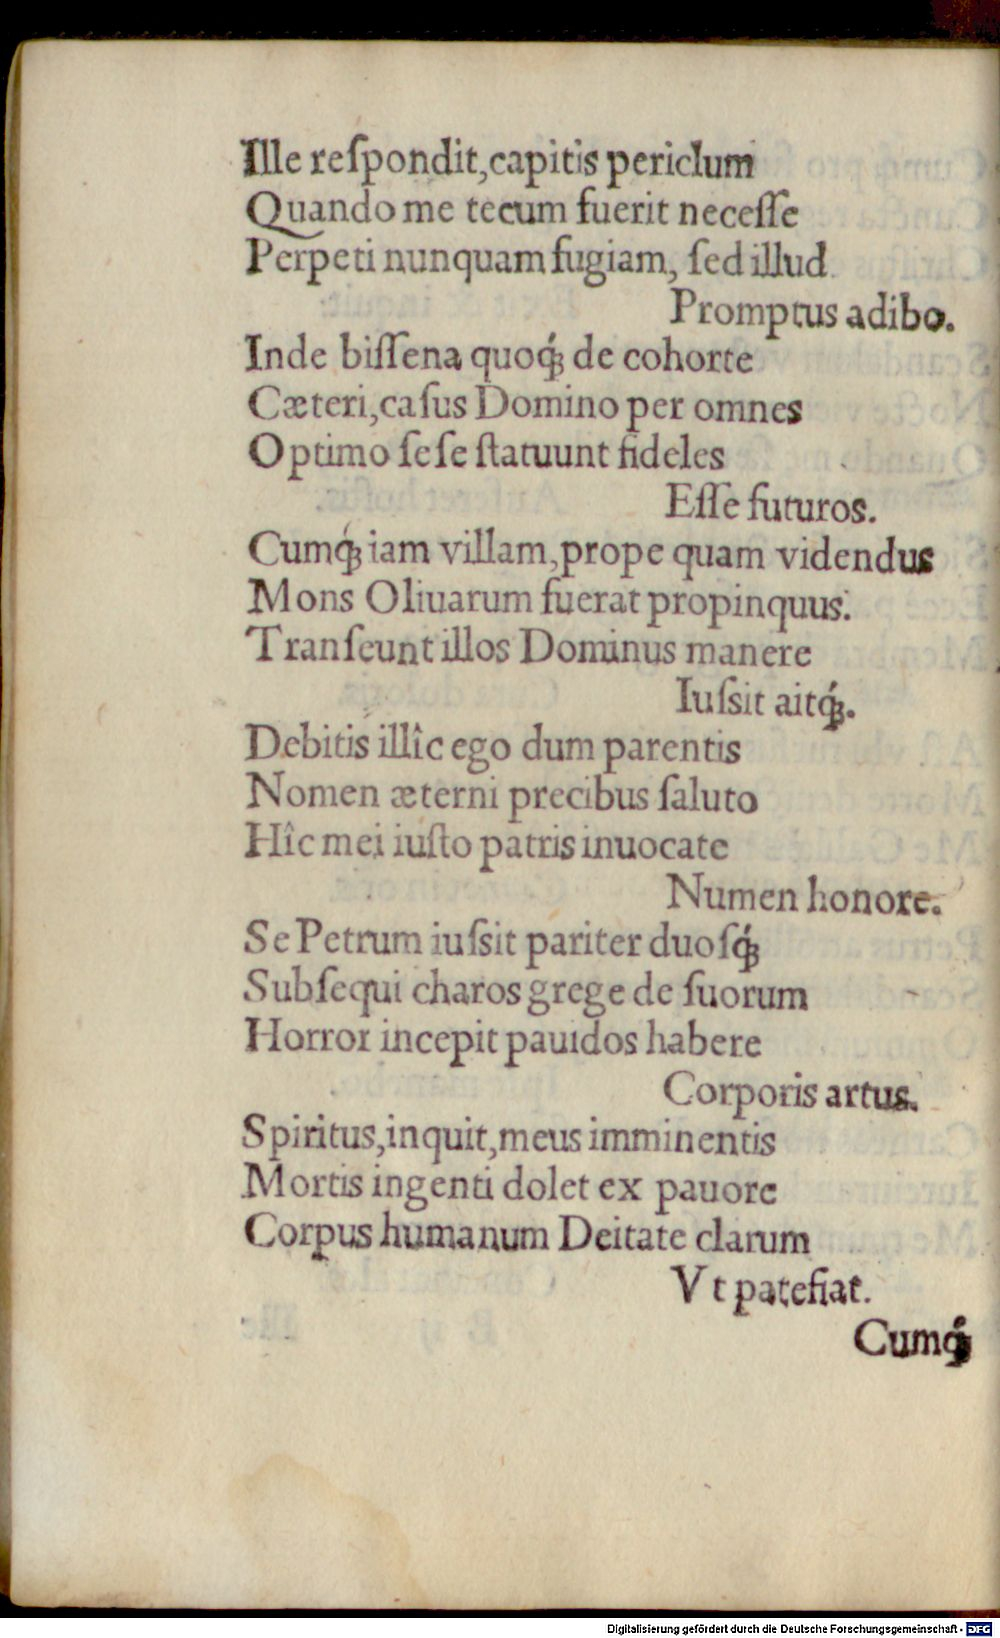 Ille reſpondit, capitis periclum
Quando me tecum fuerit neceſſe
Perpeti nunquam fugiam, ſed illud
Promptus adibo.
Inde biſſena quoq́; de cohorte
Cæteri, caſus Domino per omnes
Optimo ſeſe ſtatuunt fideles
Eſſe futuros.
Cumq́; iam villam, prope quam videndus
Mons Oliuarum fuerat propinquus:
Tranſeunt illos Dominus manere
Iuſsit aitq́;.
Debitis illîc ego dum parentis
Nomen æterni precibus ſaluto
Hîc mei iuſto patris inuocate
Numen honore.
Se Petrum iuſsit pariter duoſq́;
Subſequi charos grege de ſuorum
Horror incepit pauidos habere
Corporis artus.
Spiritus, inquit, meus imminentis
Mortis ingenti dolet ex pauore
Corpus humanum Deitate clarum
Vt patefiat.
Cumq́;
Digitalisierung gefördert durch die Deutsche Forschungsgemeinschaft - DFG